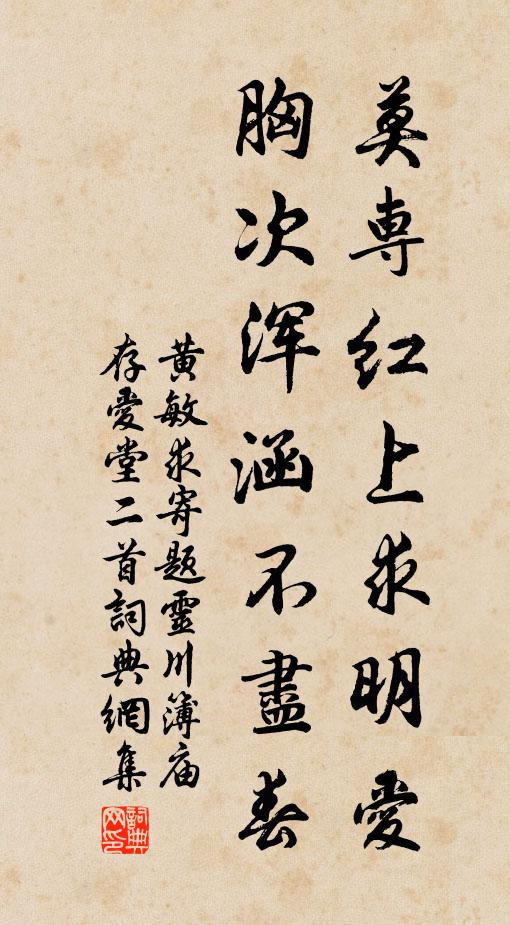 莫專红上求明愛
胸次浑涵不盡春
黄敏求寄題靈川簿庙
存愛堂二首詞典網集
詞典
网印